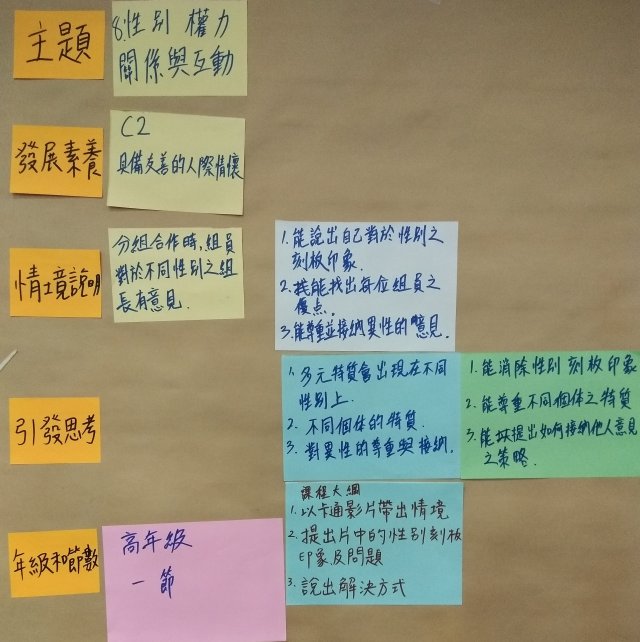 主題
8.性別 權力
關係與互動
發展素養
C2
具備友善的人際情懷
情境說明
分組合作時,組員
對於不同性別之組
長有意見.
1.能說出自己對於性別之
刻板印象.
2.我能找出每位組員之
優点.
3.能尊重並接納異性的意見.
引發思考
1.多元特質會出現在不同
性別上.
2.不同個体的特質.
3.對異性的尊重與接納.
1.能消除性別刻板印象
2.能尊重不同個体之特質
3.能提出如何接納他人意見
之策略.
年級和節數
高年級
一節
課程大綱
1.以卡通影片帶出情境
2.提出片中的性別刻板
印象及問題
3.說出解決方式